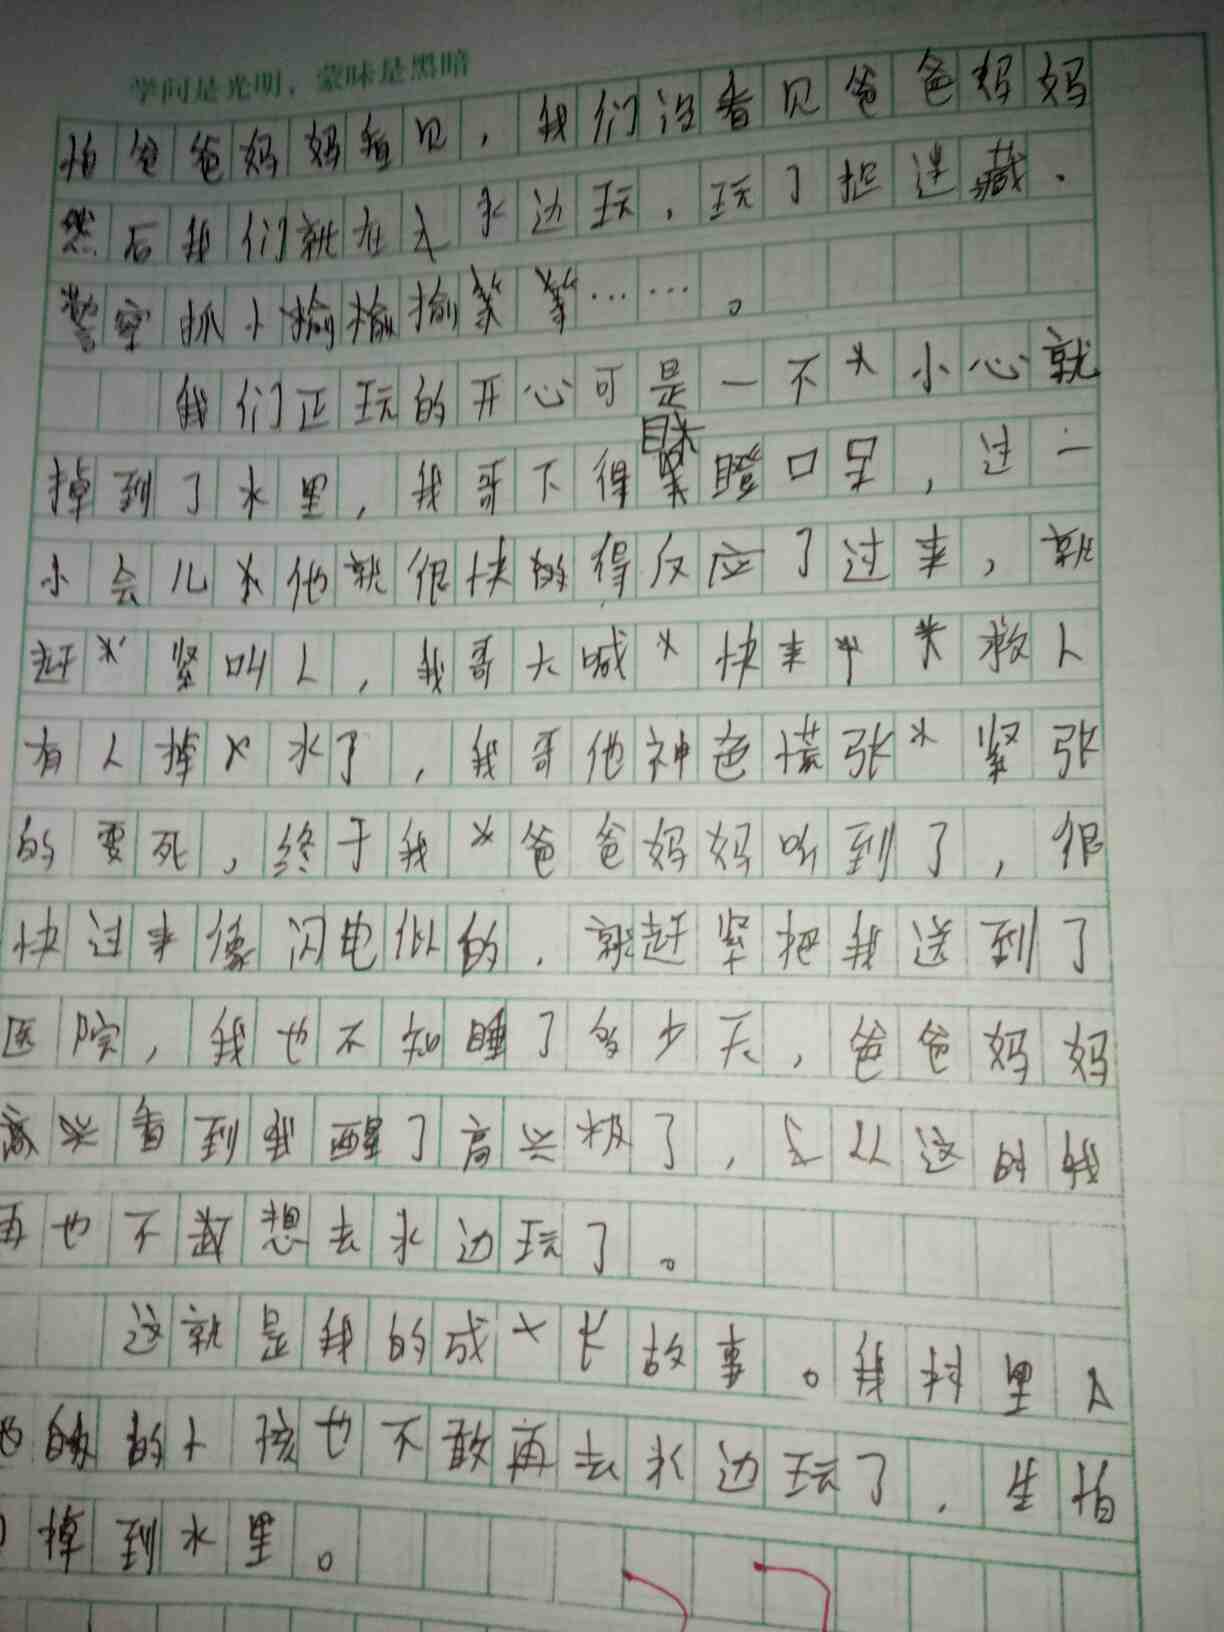 学问是光明，蒙昧是黑暗
怕爸爸妈妈看见，我们没看见爸爸妈妈
然后我们就在水边玩，玩了捉迷藏、
警察抓小偷偷偷等等……。
我们正玩的开心可是一不小心就
掉到了水里，我哥下得目瞪口呆，过一
小会儿他就很快的得反应了过来，就
赶紧叫人，我哥大喊快来救人
有人掉水了，我哥他神色慌张紧张
的要死，终于我爸爸妈妈听到了，很
快后来像闪电似的，就赶紧把我送到了
医院，我也不知睡了多少天，爸爸妈妈
看到我醒了高兴极了，
再也不敢想去水边玩了。
这就是我的成长故事。我村里人
的小孩也不敢再去水边玩了，生怕
掉到水里。